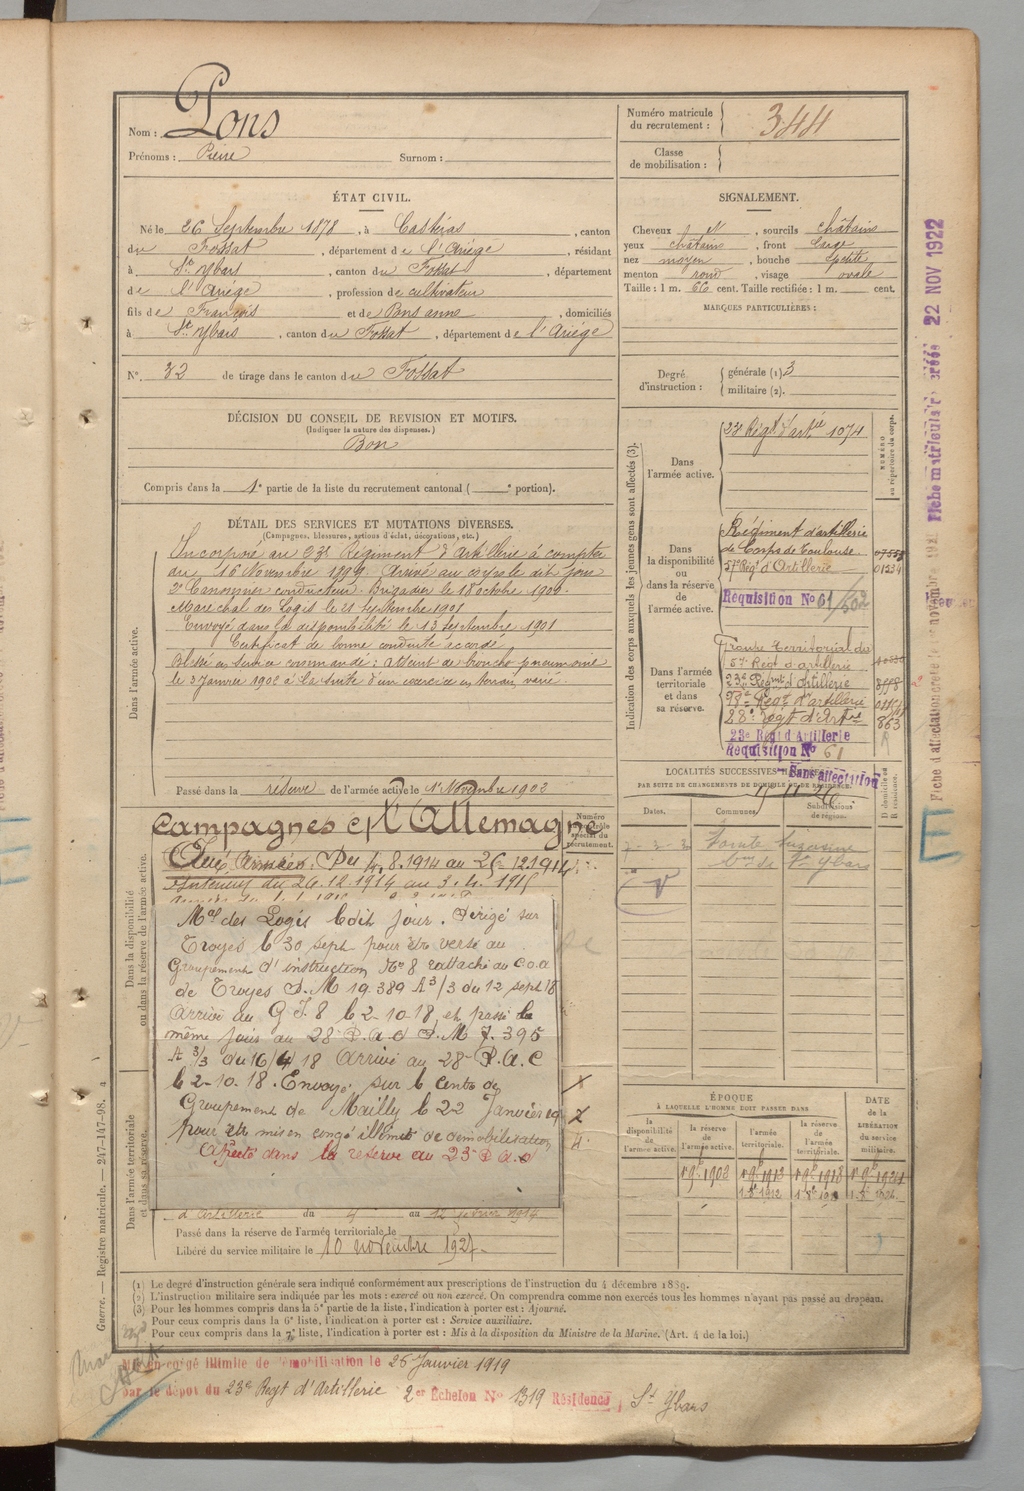 Nom : Pons
Prénoms : Pierre Surnom :
Numéro matricule du recrutement : 344
Classe de mobilisation :
ÉTAT CIVIL.
Né le 26 Septembre 1878, à Castéras, canton
du Fossat, département de l'Ariége, résidant
à St Ybars, canton du Fossat, département
de l'Ariége, profession de cultivateur
fils de François et de Pons anne, domiciliés
à St Ybars, canton du Fossat, département de l'Ariége
N° 32 de tirage dans le canton du Fossat
SIGNALEMENT.
Cheveux N, sourcils châtains
yeux châtains, front large
nez moyen, bouche petite
menton rond, visage ovale
Taille : 1 m. 66 cent. Taille rectifiée : 1 m. cent.
MARQUES PARTICULIÈRES :
Degré d'instruction : générale (1) 3
militaire (2).
DÉCISION DU CONSEIL DE REVISION ET MOTIFS.
(Indiquer la nature des dispenses.)
Bon
Compris dans la 1e partie de la liste du recrutement cantonal ( e portion).
DÉTAIL DES SERVICES ET MUTATIONS DIVERSES.
(Campagnes, blessures, actions d'éclat, décorations, etc.)
Dans l'armée active.
Incorporé au 23e Régiment d'artillerie à compter
du 16 Novembre 1899. Arrivé au corps le dit jour
2e Canonnier conducteur. Brigadier le 18 octobre 1900.
Maréchal des Logis le 21 Septembre 1901
Envoyé dans la disponibilité le 13 Septembre 1901
Certificat de bonne conduite accordé
Blessé en service commandé : atteint de broncho pneumonie
le 3 Janvier 1902 à la suite d'un exercice en terrain varié.
Passé dans la réserve de l'armée active le 1er Novembre 1902
Indication des corps auxquels les jeunes gens sont affectés (3).
NUMÉRO au répertoire du corps.
Dans l'armée active.
23e Régt d'artie 1074
Dans la disponibilité ou dans la réserve de l'armée active.
Régiment d'artillerie
de Corps de Toulouse 07553
57e Régt d'Artillerie 01234
Réquisition No 61/502
Dans l'armée territoriale et dans sa réserve.
Groupe territorial du
57e Régt d'artillerie
23e Régiment d'Artillerie 8558
28e Régt d'Arte 863
23e Régt d'Artillerie
Réquisition No 61
Sans affectation
LOCALITÉS SUCCESSIVES HABITÉES
PAR SUITE DE CHANGEMENTS DE DOMICILE OU DE RÉSIDENCE.
Dates. Communes. Subdivisions de région. D domicile ou R résidence.
Campagnes c/ l'Allemagne
Aux Armées. Du 4.8.1914 au 25.12.1914
Intérieur du 26.12.1914 au 3.4.1915
Numéro au contrôle spécial du recrutement.
Dans la disponibilité ou dans la réserve de l'armée active.
Mal des Logis le dit jour. Dirigé sur
Troyes le 30 sept pour être versé au
Groupement d'instruction No 8 rattaché au C.O.A
de Troyes D.M 19.389 A 3/3 du 12 sept 18
Arrivé au G.I.8 le 2-10-18, et passé le
même jour au 28e P.A.D D.M 7.395
A 3/3 du 16/4 18 Arrivé au 28e P.A.C
le 2-10-18. Envoyé sur le centre de
Groupement de Mailly le 22 Janvier 19
pour être mis en congé illimité de démobilisation
Affecté dans la réserve au 23e P.A.D
Dans l'armée territoriale et dans sa réserve.
d'artillerie du au 12 février 1914
Passé dans la réserve de l'armée territoriale le
Libéré du service militaire le 10 novembre 1927.
ÉPOQUE
À LAQUELLE L'HOMME DOIT PASSER DANS
DATE de la LIBÉRATION du service militaire.
la disponibilité de l'armée active. la réserve de l'armée active. l'armée territoriale. la réserve de l'armée territoriale.
(1) Le degré d'instruction générale sera indiqué conformément aux prescriptions de l'instruction du 4 décembre 1889.
(2) L'instruction militaire sera indiquée par les mots : exercé ou non exercé. On comprendra comme non exercés tous les hommes n'ayant pas passé au drapeau.
(3) Pour les hommes compris dans la 5e partie de la liste, l'indication à porter est : Ajourné.
Pour ceux compris dans la 6e liste, l'indication à porter est : Service auxiliaire.
Pour ceux compris dans la 7e liste, l'indication à porter est : Mis à la disposition du Ministre de la Marine. (Art. 4 de la loi.)
Mis en congé illimité de démobilisation le 26 Janvier 1919
par le dépôt du 23e Regt d'Artillerie 2e Echelon No 1319 Résidence St Ybars
Guerre. — Registre matricule. — 247-147-98.
22 NOV 1922